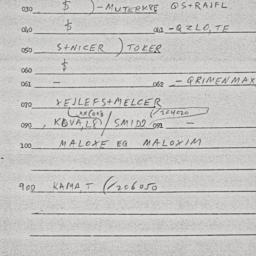 030 $ ) - MUTERKRE QS+RAJFL
040 $ 042 - QZLO, TE
050 S+NICER ) TOKER
060 $
061 - 062 - GRIMENMAX
070 YEJLEFS+MELCER
090, / SMIDO 091 -
100 MALOXE EG MALOXIM
900 KAMA, T (/206050